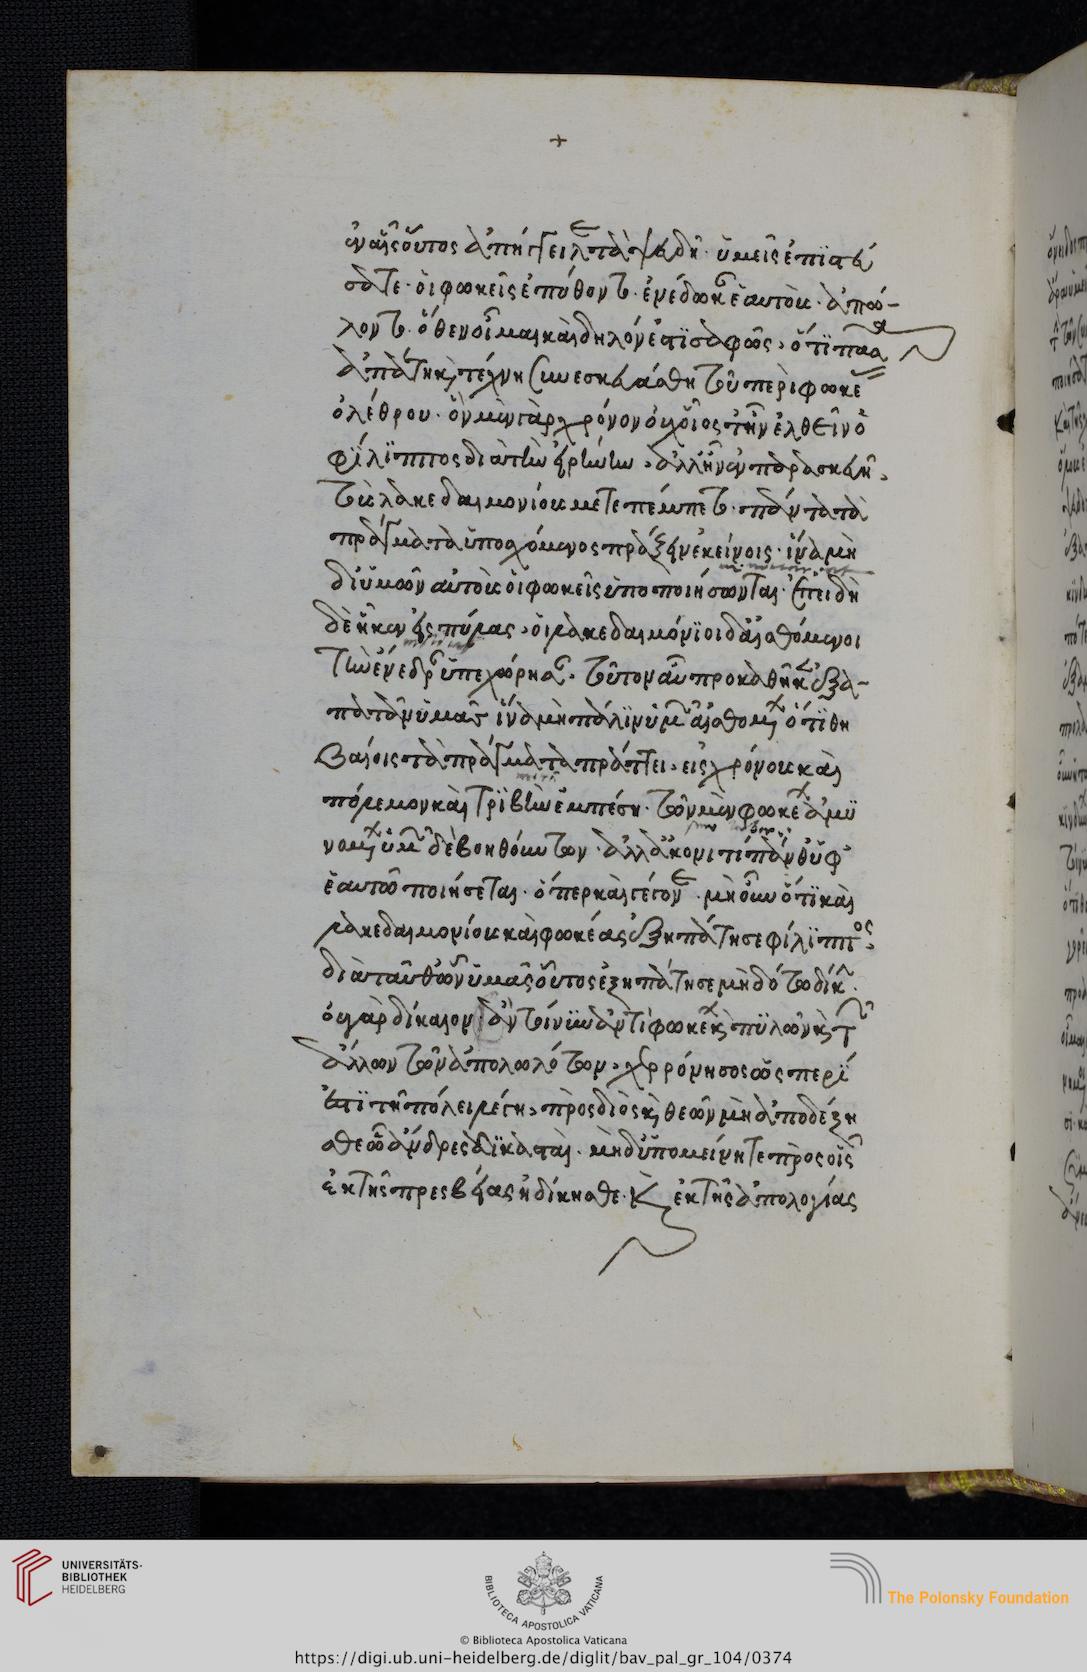 +
ἐν αἷς οὗτος ἀπήγγειλε τὰ ψευδῆ· ὑμεῖς ἐπιστεύ
σατε· οἱ φωκεῖς ἐπύθοντο· ἐνέδωκαν ἑαυτοὺς· ἀπώ-
λοντο. ὅθεν οἶμαι καὶ δῆλόν ἐστι σαφῶς, ὅτι πάντα
ἀπάτη καὶ τέχνη συνεσκευάσθη τοῦ περὶ φωκέας
ὀλέθρου· ὃν μὲν γὰρ χρόνον οὐχ οἷός τ' ἦν ἐλθεῖν ὁ
φίλιππος διὰ τὴν εἰρήνην, ἀλλ' ἦν ἐν παρασκευῇ,
τοὺς λακεδαιμονίους μετεπέμπετο· πάντα τὰ
πράγματα ὑποσχόμενος πράξειν ἐκείνοις· ἵνα μὴ
δι' ὑμῶν αὐτοὺς οἱ φωκεῖς ὑποποιήσωνται· ἐπειδὴ
δὲ ἧκεν εἰς πύλας, οἱ λακεδαιμόνιοι δ' αἰσθόμενοι
τὴν ἐνέδραν ὑπεχώρησαν. τοῦτον αὖ προκαθῆκεν ἐξα-
πατᾶν ὑμᾶς ἵνα μὴ πάλιν ὑμῶν αἰσθομένων ὅτι θη
βαίοις τὰ πράγματα πράττει, εἰς χρόνους καὶ
πόλεμον καὶ τριβὴν ἐμπέσῃ· τῶν μὲν φωκέων ἀμυ
νομένων ὑμῶν δὲ βοηθούντων· ἀλλ' ἀκονιτὶ πάνθ' ὑφ'
ἑαυτῷ ποιήσεται· ὅπερ καὶ γέγονε. μὴ οὖν ὅτι καὶ
λακεδαιμονίους καὶ φωκέας ἐξηπάτησε φίλιππος,
διὰ ταῦθ' ὧν ὑμᾶς οὗτος ἐξηπάτησε μὴ δότω δίκην.
οὐ γὰρ δίκαιον· ἂν τοίνυν ἀντὶ φωκέων καὶ πυλῶν καὶ τῶν
ἄλλων τῶν ἀπολωλότων, χερρόνησος ὡς περί
εστι τῇ πόλει λέγῃ, πρὸς διὸς καὶ θεῶν μὴ ἀποδέξη
σθε ὦ ἄνδρες δικασταί· μηδ' ὑπομείνητε πρὸς οἷς
ἐκ τῆς πρεσβείας ἠδίκησθε· καὶ ἐκ τῆς ἀπολογίας
UNIVERSITÄTS-
BIBLIOTHEK
HEIDELBERG
BIBLIOTECA APOSTOLICA VATICANA
The Polonsky Foundation
© Biblioteca Apostolica Vaticana
https://digi.ub.uni-heidelberg.de/diglit/bav_pal_gr_104/0374